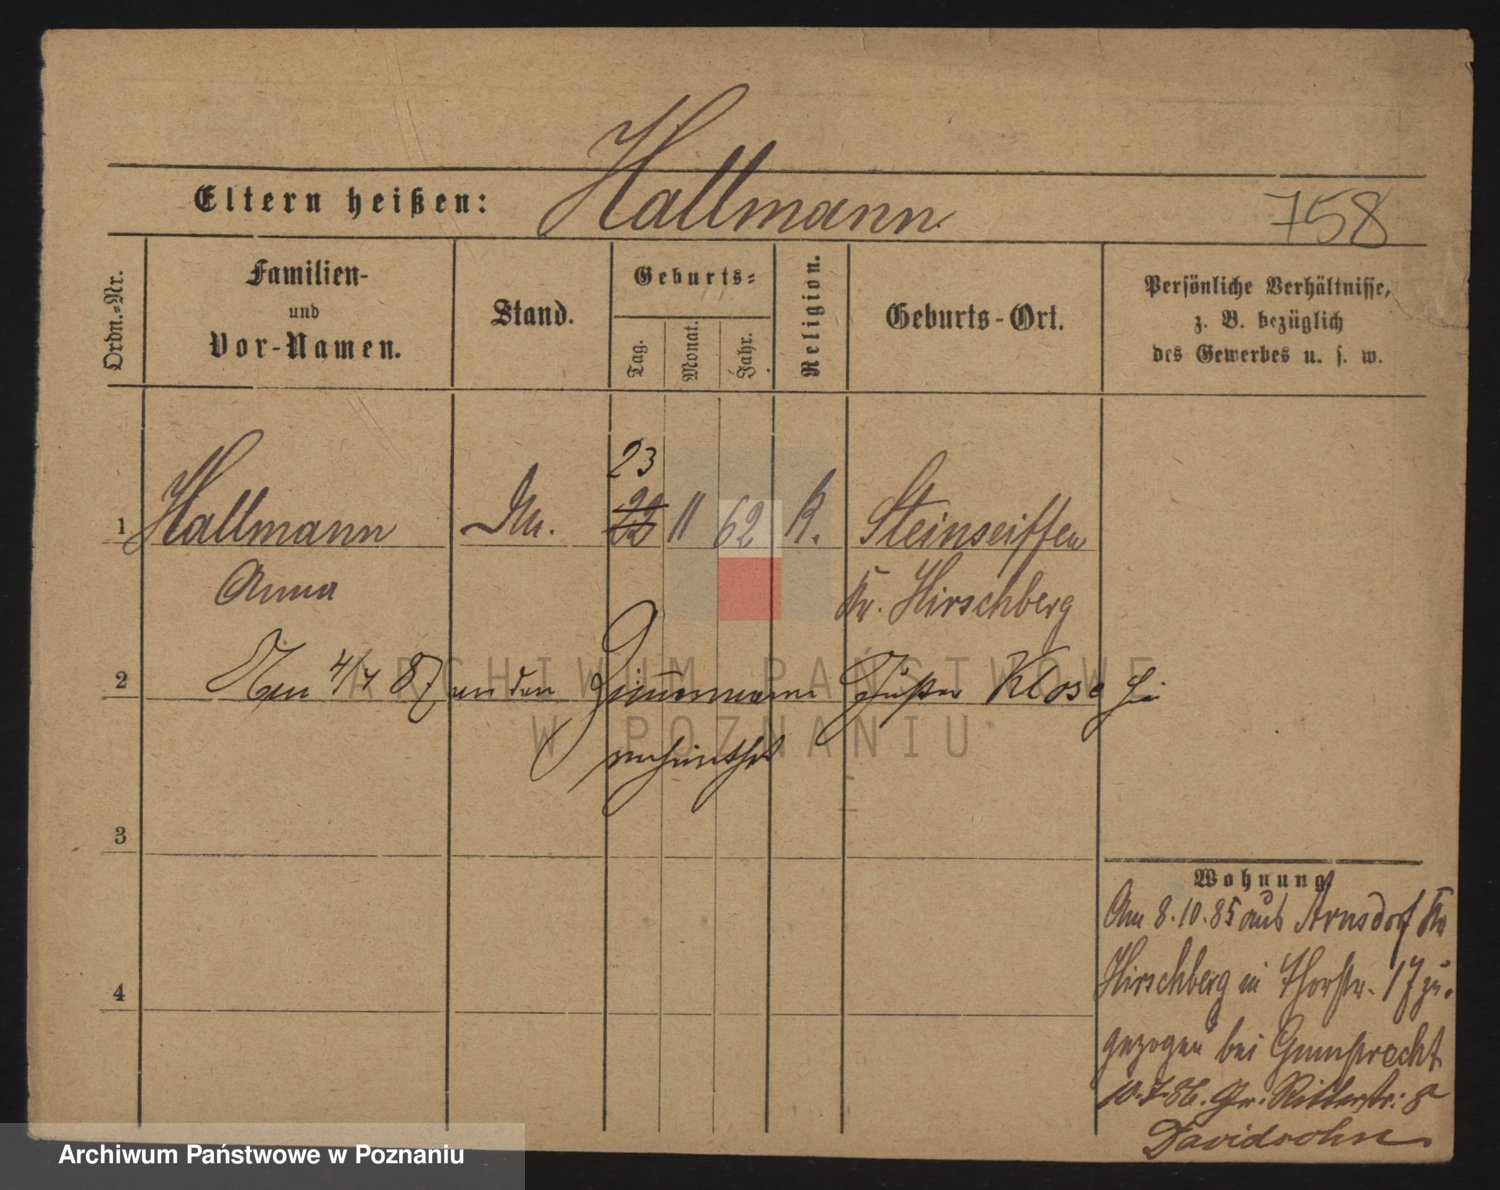 Hallmann
Eltern heißen:
758
Ordn.-Nr.
Familien-
und
Vor-Namen.
Stand.
Geburts-
Tag.
Monat.
Jahr.
Religion.
Geburts-Ort.
Persönliche Verhältnisse,
z. B. bezüglich
des Gewerbes u. s. w.
23
1 Hallmann 22 11 62 K. Steinseiffen
Anna Kr. Hirschberg
2 4/7 87 an den Zimmermann Klose
3
Wohnung
Am 8.10.85 aus Arnsdorf Kr
4
Hirschberg in Thorstr. 17 zu-
gezogen bei Gumprecht
10.7.86. Gr. Ritterstr: 8
Davidsohn
ARCHIWUM PAŃSTWOWE
W POZNANIU
Archiwum Państwowe w Poznaniu